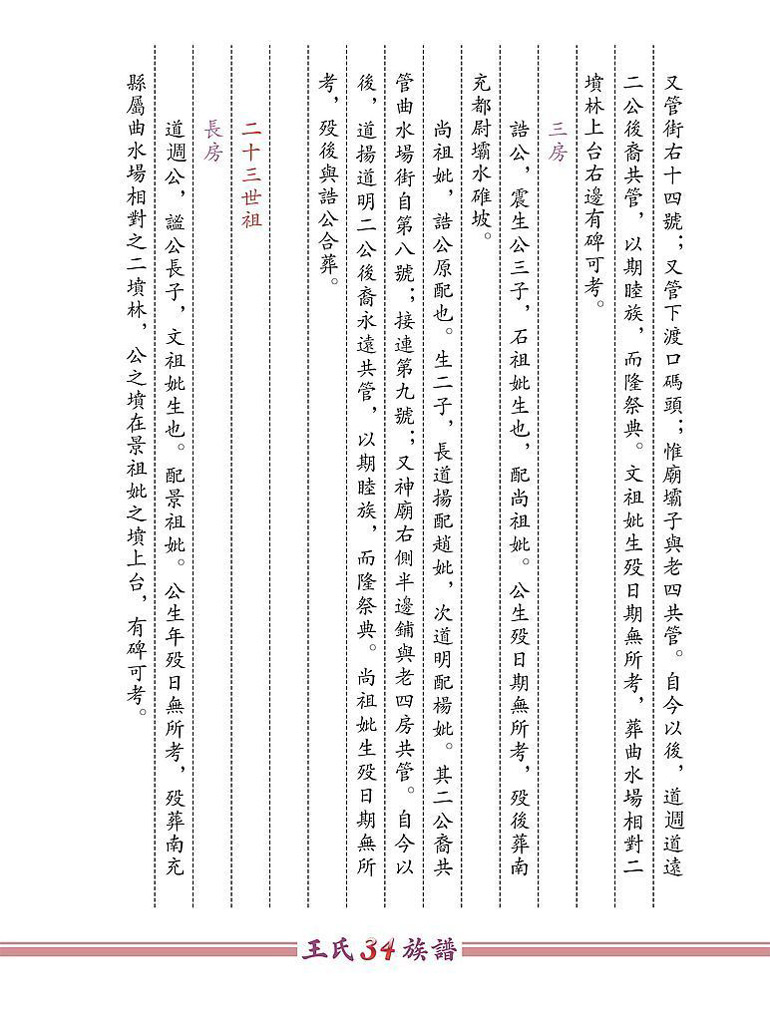 又管街右十四號；又管下渡口碼頭；惟廟壩子與老四共管。自今以後，道週道遠
二公後裔共管，以期睦族，而隆祭典。文祖妣生殁日期無所考，葬曲水場相對二
墳林上台右邊有碑可考。
三房
誥公，震生公三子，石祖妣生也，配尚祖妣。公生殁日期無所考，殁後葬南
充都尉壩水碓坡。
尚祖妣，誥公原配也。生二子，長道揚配趙妣，次道明配楊妣。其二公裔共
管曲水場街自第八號；接連第九號；又神廟右側半邊鋪與老四房共管。自今以
後，道揚道明二公後裔永遠共管，以期睦族，而隆祭典。尚祖妣生殁日期無所
考，殁後與誥公合葬。
二十三世祖
長房
道週公，謐公長子，文祖妣生也。配景祖妣。公生年殁日無所考，殁葬南充
縣屬曲水場相對之二墳林，公之墳在景祖妣之墳上台，有碑可考。
王氏34族譜